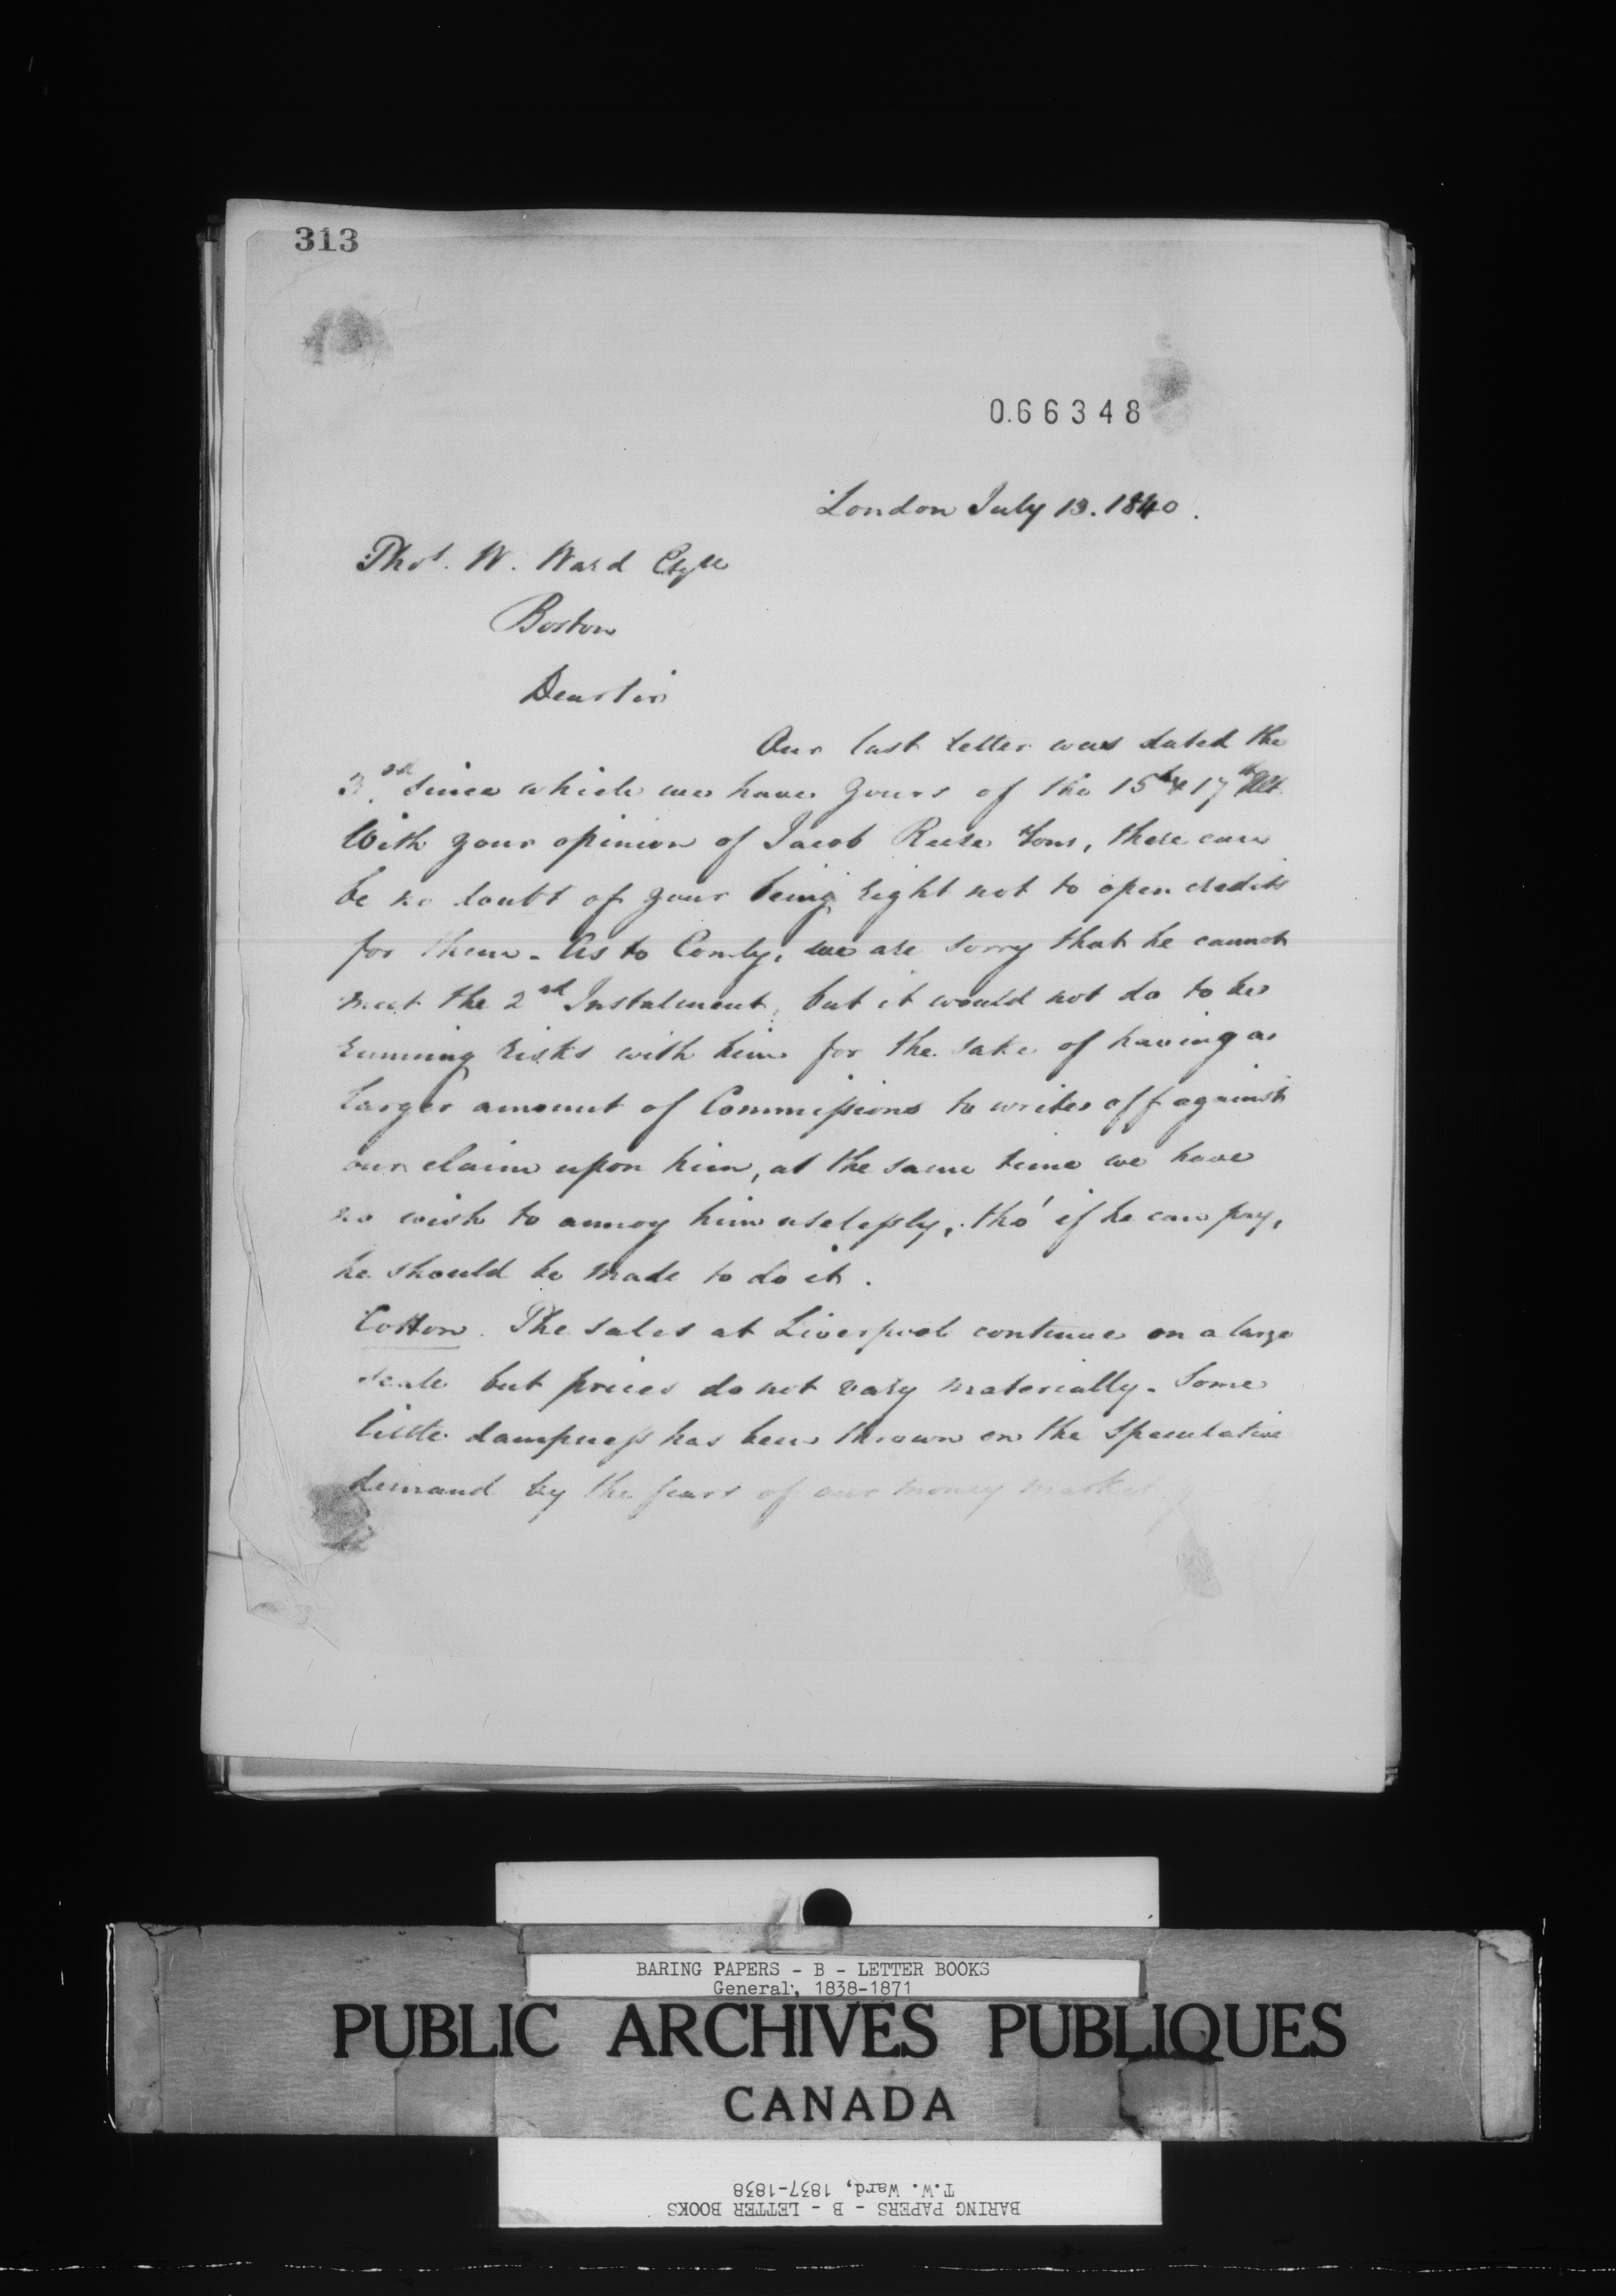 313
0.66348
London July 13. 1840.
Thos. W. Ward Esqre
Boston
Dear Sir
Our last letter was dated the
3rd since which we have yours of the 15th & 17th Ult.
With your opinion of Jacob Reese & Sons, there can
be no doubt of your being right not to open credits
for them. As to Comly, we are sorry that he cannot
meet the 2nd Instalment, but it would not do to be
running risks with him for the sake of having a
larger amount of Commissions to write off against
our claim upon him, at the same time we have
no wish to annoy him uselessly, tho' if he can pay,
he should be made to do it.
Cotton. The sales at Liverpool continue on a large
scale but prices do not vary materially. Some
little dampness has been thrown on the Speculative
demand by the fears of our money market
BARING PAPERS - B - LETTER BOOKS
General, 1838-1871
PUBLIC ARCHIVES PUBLIQUES
CANADA
BARING PAPERS - B - LETTER BOOKS
T.W. Ward, 1837-1838